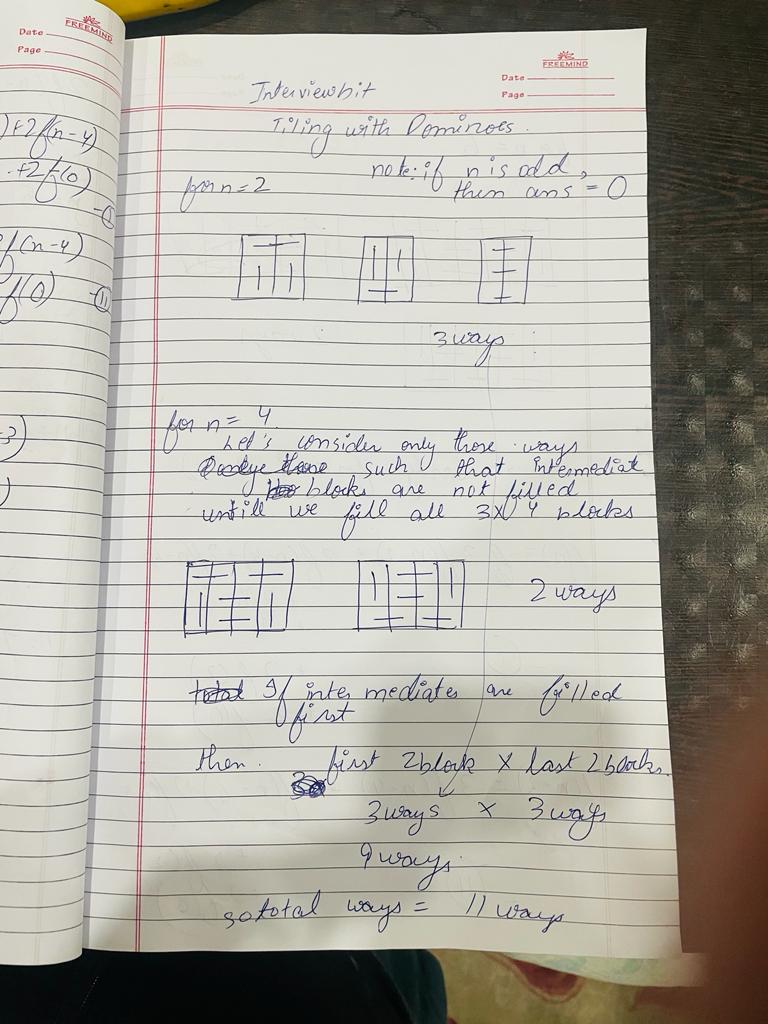 Date
FREEMIND
Page
)+2f(n-4)
+2f(0)
-(I)
f(n-4)
f(0) -(II)
FREEMIND
Date
Page
Interviewbit
Tiling with Dominoes.
note: if n is odd,
then ans = 0
for n = 2
3 ways
for n = 4
Let's consider only those ways
such that intermediate
blocks are not filled
untill we fill all 3x4 blocks
2 ways
If intermediates are filled
first
then. first 2 block x last 2 blocks.
3 ways x 3 ways
9 ways.
so total ways = 11 ways